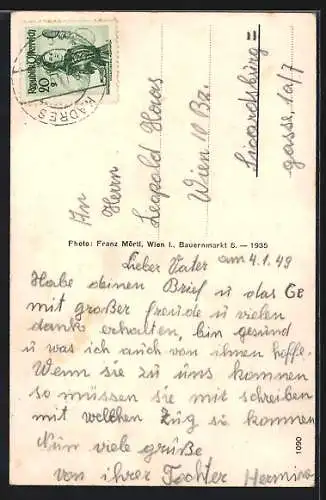 Republik Österreich
20 g
KADRES
An
Herrn
Leopold Haas
Wien 10 Bz.
Siccardsburg =
gasse, 1a/7
Photo: Franz Mörtl, Wien I., Bauernmarkt 5. — 1935
Lieber Vater am 4.1.49
Habe deinen Brief u das
mit großer freude u vielen
dank erhalten, bin gesund
u was ich auch von ihnen hoffe.
Wenn sie zu uns kommen
so müssen sie mit schreiben
mit welchen Zug sie kommen
Nun viele grüße
von ihrer Tochter Hermine
1090